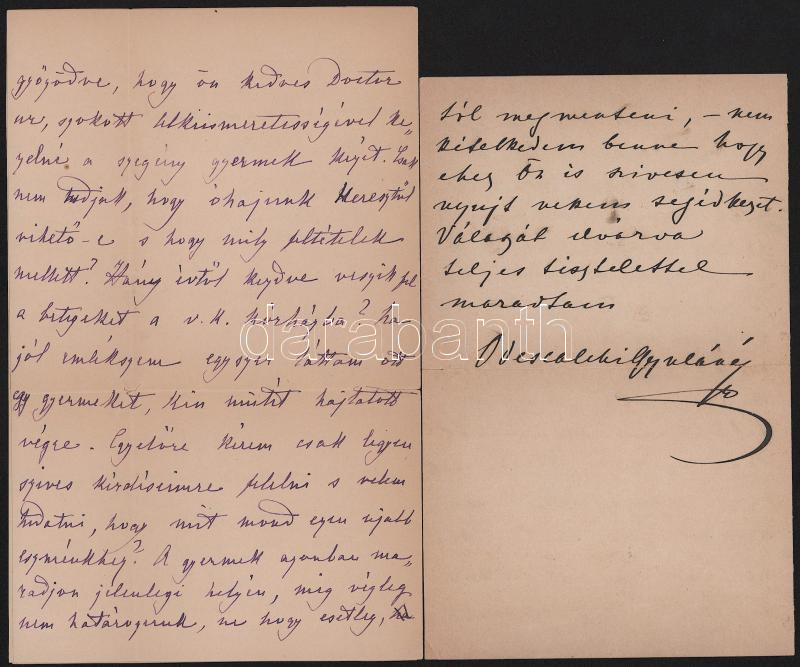 győződve, hogy ön kedves Doctor
ur, szokott lelkiismeretességével ke„
zelné a szegény gyermek kezét. Csak
nem tudjuk, hogy óhajunk keresztül
vihető-e s hogy mily feltételek
mellett? Hány évtől kezdve veszik fel
a betegeket a v. k. kórházba? ha
jól emlékszem egyszer láttam ott
egy gyermeket, kin műtét hajtatott
végre. Egyelőre kérem csak legyen
szives kérdéseimre felelni s velem
tudatni, hogy mit mond ezen ujabb
eszménkhez? A gyermek azonban ma„
radjon jelenlegi helyén, mig végleg
nem határozunk, ne hogy esetleg,
tól megmenteni, – nem
kételkedem benne hogy
ehez Ön is szivesen
nyujt nekem segédkezet.
Válaszát elvárva
teljes tisztelettel
maradtam
darabanth